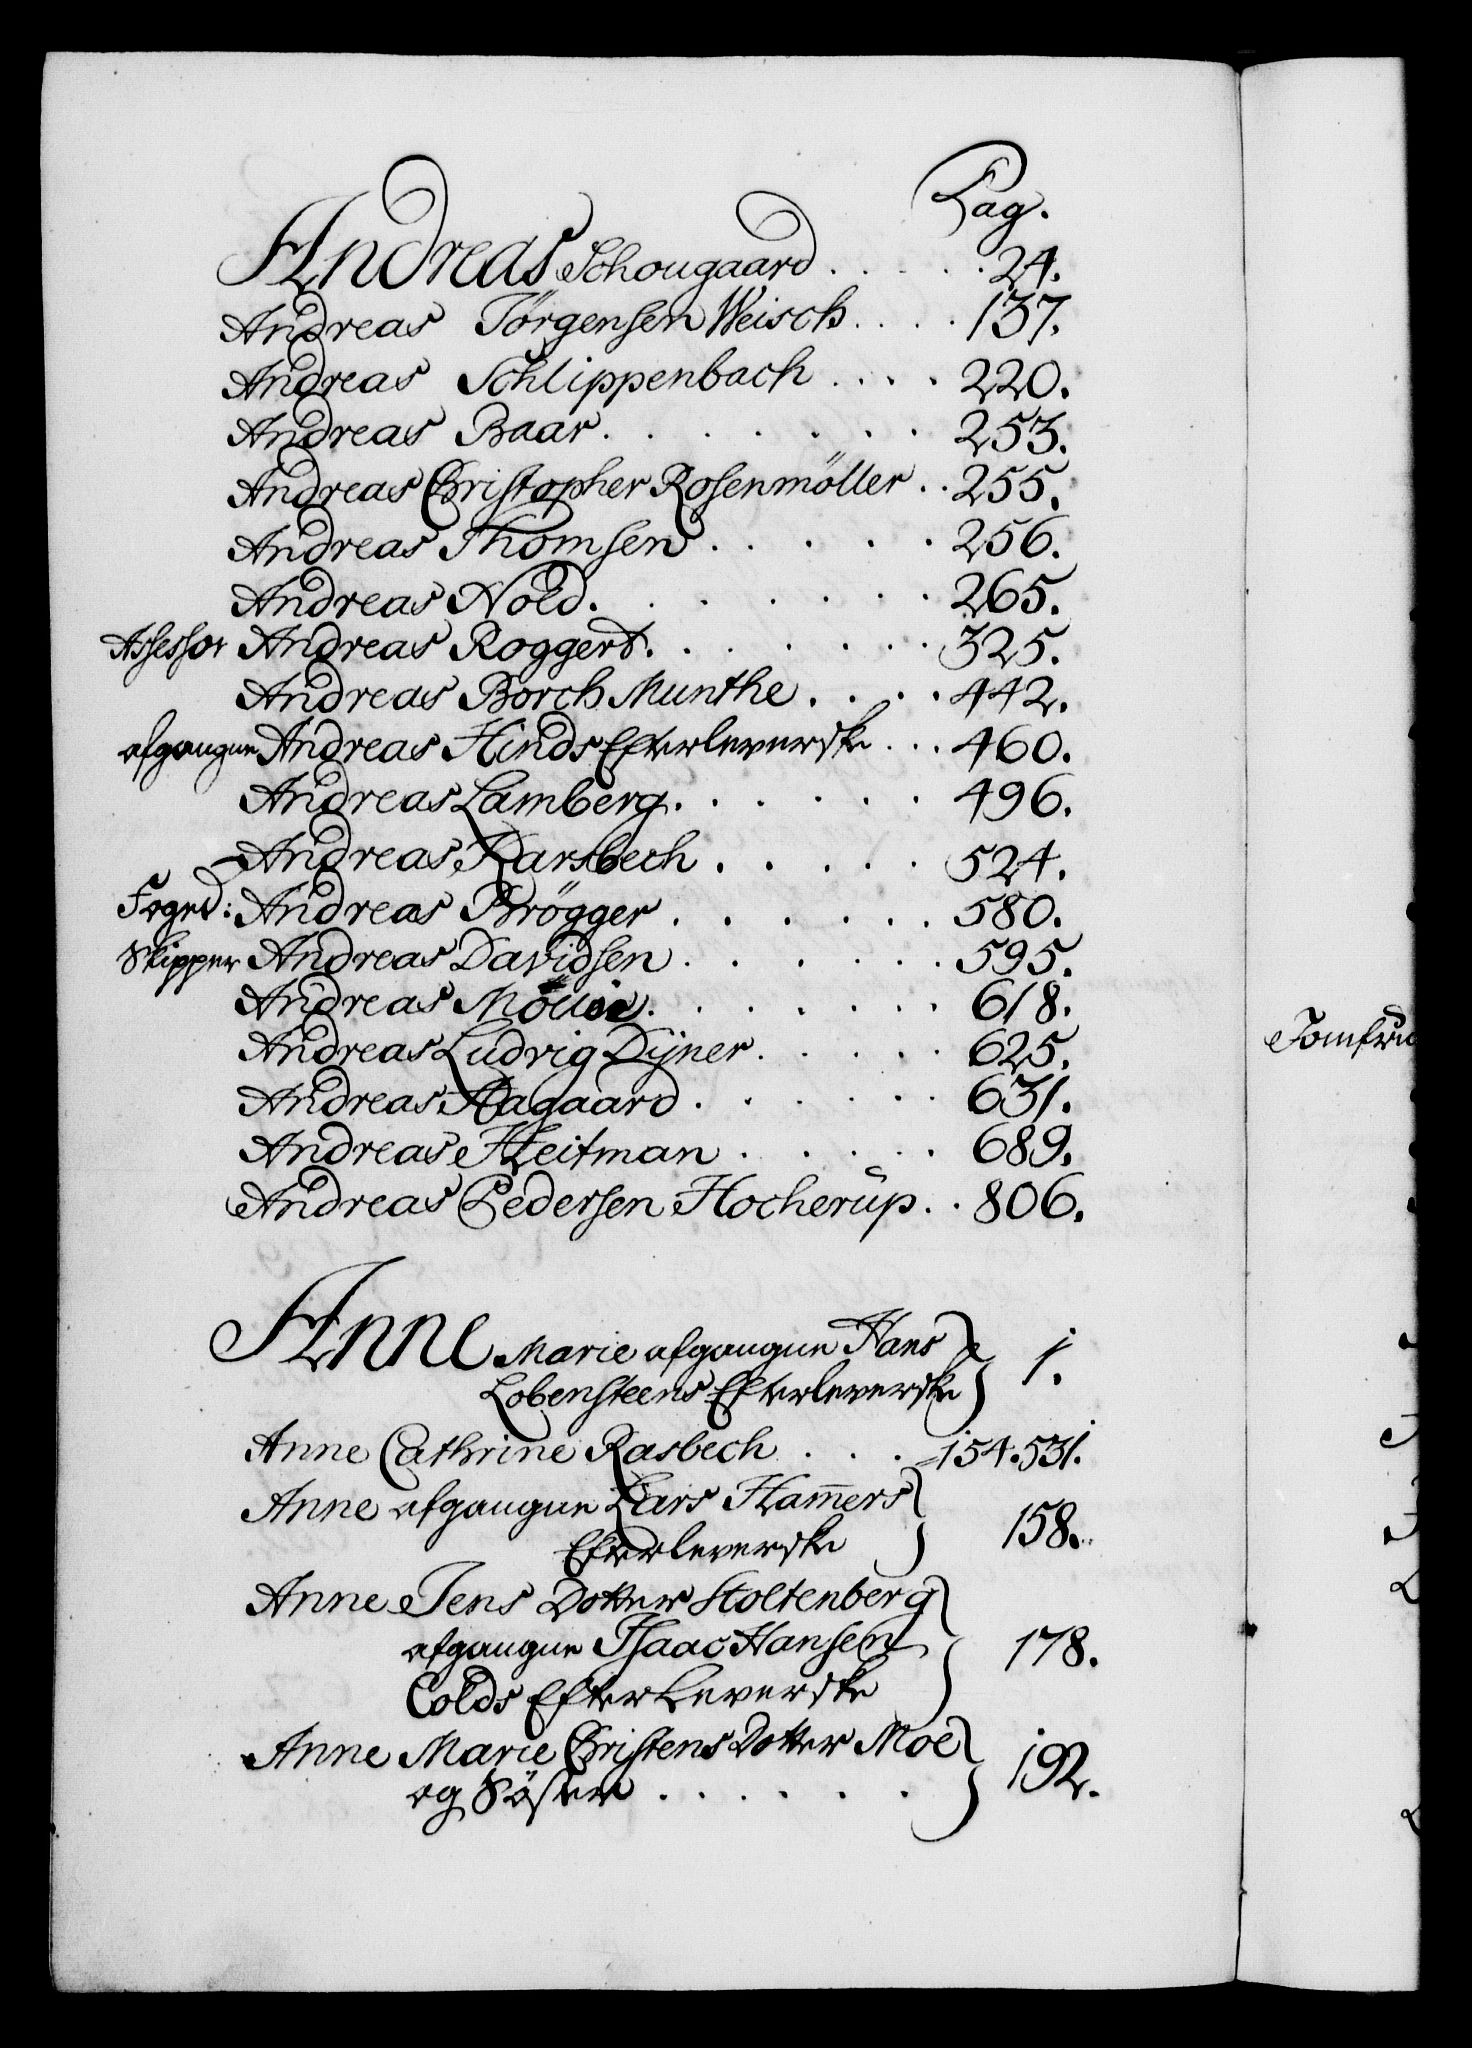 Pag.
Andreas Schougaard . . . . . 24.
Andreas Jörgensen Weisch . . . . 137.
Andreas Schlippenbach . . . . 220.
Andreas Baar . . . . . . . 253.
Andreas Christopher Rosenmöller . . 255.
Andreas Thomsen . . . . . 256.
Andreas Nold . . . . . . . 265.
Assessor Andreas Roggert . . . . . . 325.
Andreas Borch Munthe . . . . 442.
afgangne Andreas Hinds Efterleverske . . . 460.
Andreas Lamberg . . . . . . 496.
Andreas Karsbech . . . . . 524.
Foged: Andreas Brögger . . . . . . 580.
Skipper Andreas Davidsen . . . . . . 595.
Andreas . . . . . . . 618.
Andreas Ludvig Dÿner . . . . . 625.
Andreas Aagaard . . . . . . 631.
Andreas Heitman . . . . . 689.
Andreas Pedersen Hocherŭp . . 806.
Anne Marie afgangne Hans
Lobensteens Efterleverske } 1.
Anne Cathrine Rasbech . . . 154. 531.
Anne afgangne Lars Ham̄ers
Efterleverske } 158.
Anne Jens Dotter Stoltenberg
afgangne Isaac Hansen
Colds Efterleverske } 178.
Anne Marie Christens Dotter Moe
og Söster . . . . . . } 192.
Jomfru